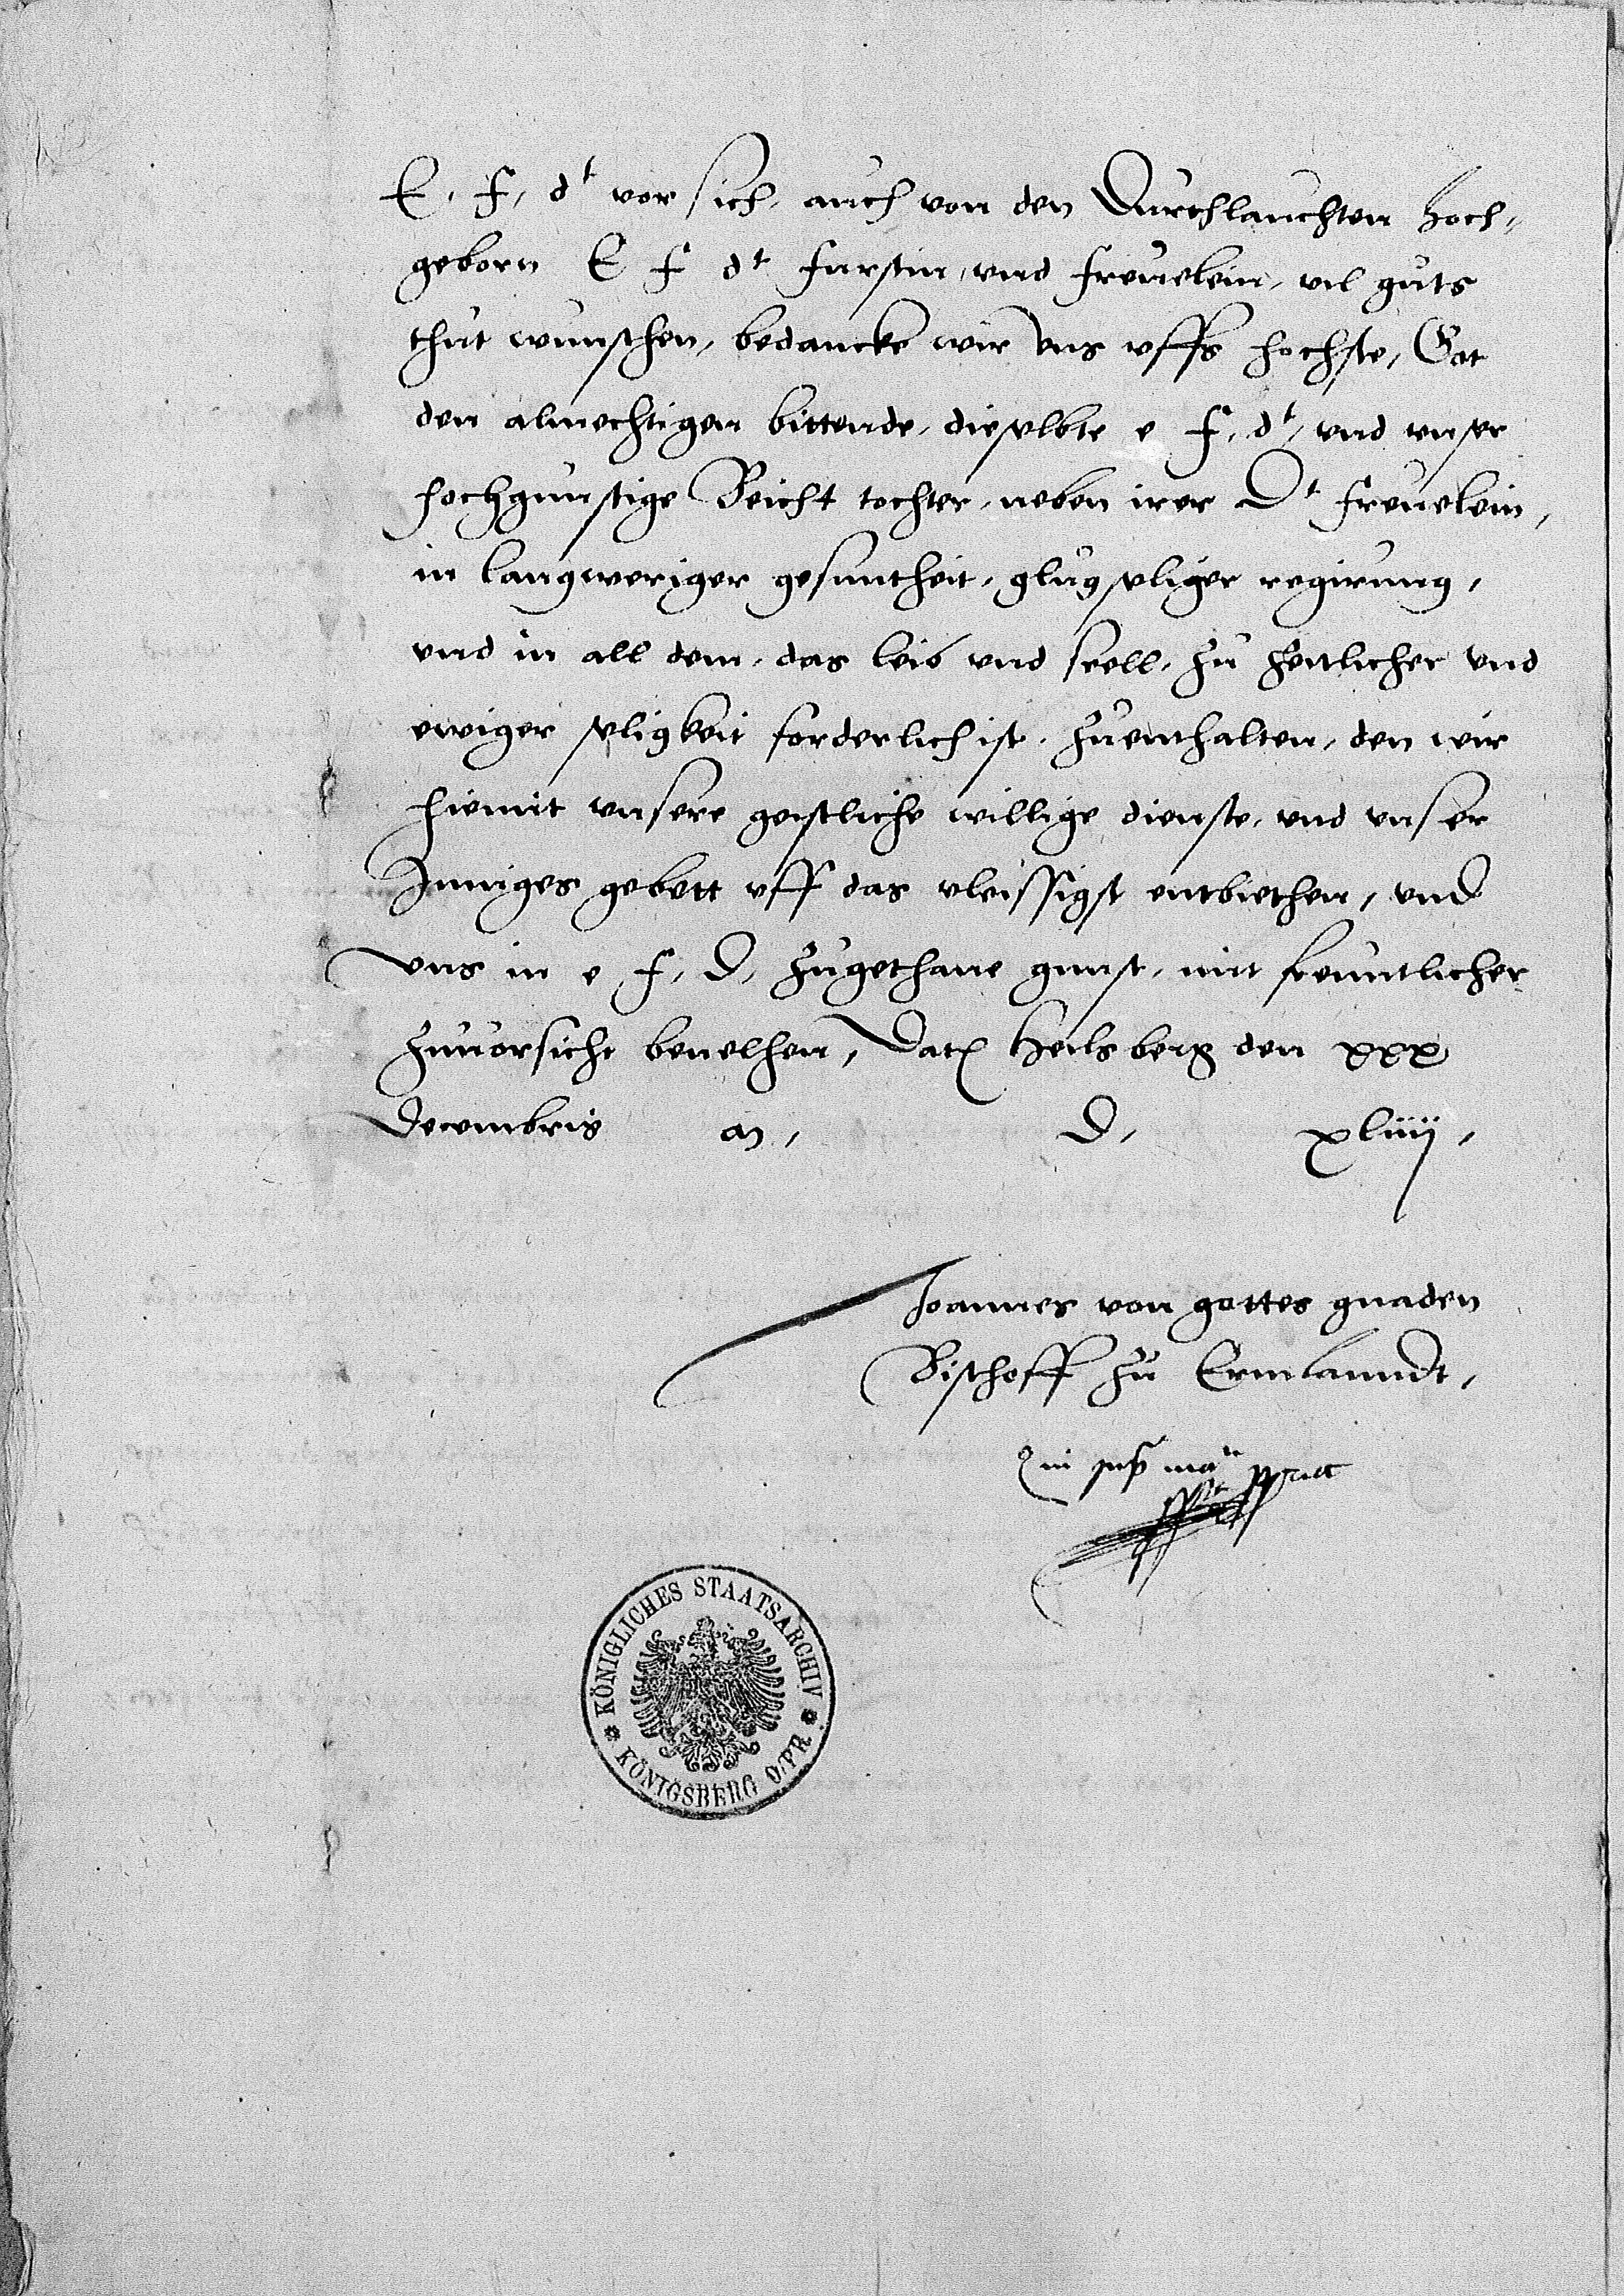 E. f. dt vor sich, auch von den Durchlauchten hoch-
geborn E f dt furstin, und freuelein, vil guts
thut wunschen, bedancke wir uns uffs hochste, Got
den almechtigen bittende, dieselbte e f. dt, und unser
hochgunstige Beicht tochter, neben irer Dt freuelein,
in langweriger gesuntheit, glugseliger regirung,
und in all dem, das leib und seell, zu zeitlicher und
ewiger seligkeit forderlich ist, zuenthalten, den wir
hiemit unsere geistliche willige dienste, und unser
Inniges gebett uff das vleissigst entbiethen, und
uns in e f. D. zugethane gunst, mit freuntlicher
zuuorsicht beuelhen, Dat Heilsberg den xxx
Decembris an. D. xliiij.
Joannes von gottes gnaden
Bischoff zu Ermlanndt,
KÖNIGLICHES STAATSARCHIV
KÖNIGSBERG O/PR.